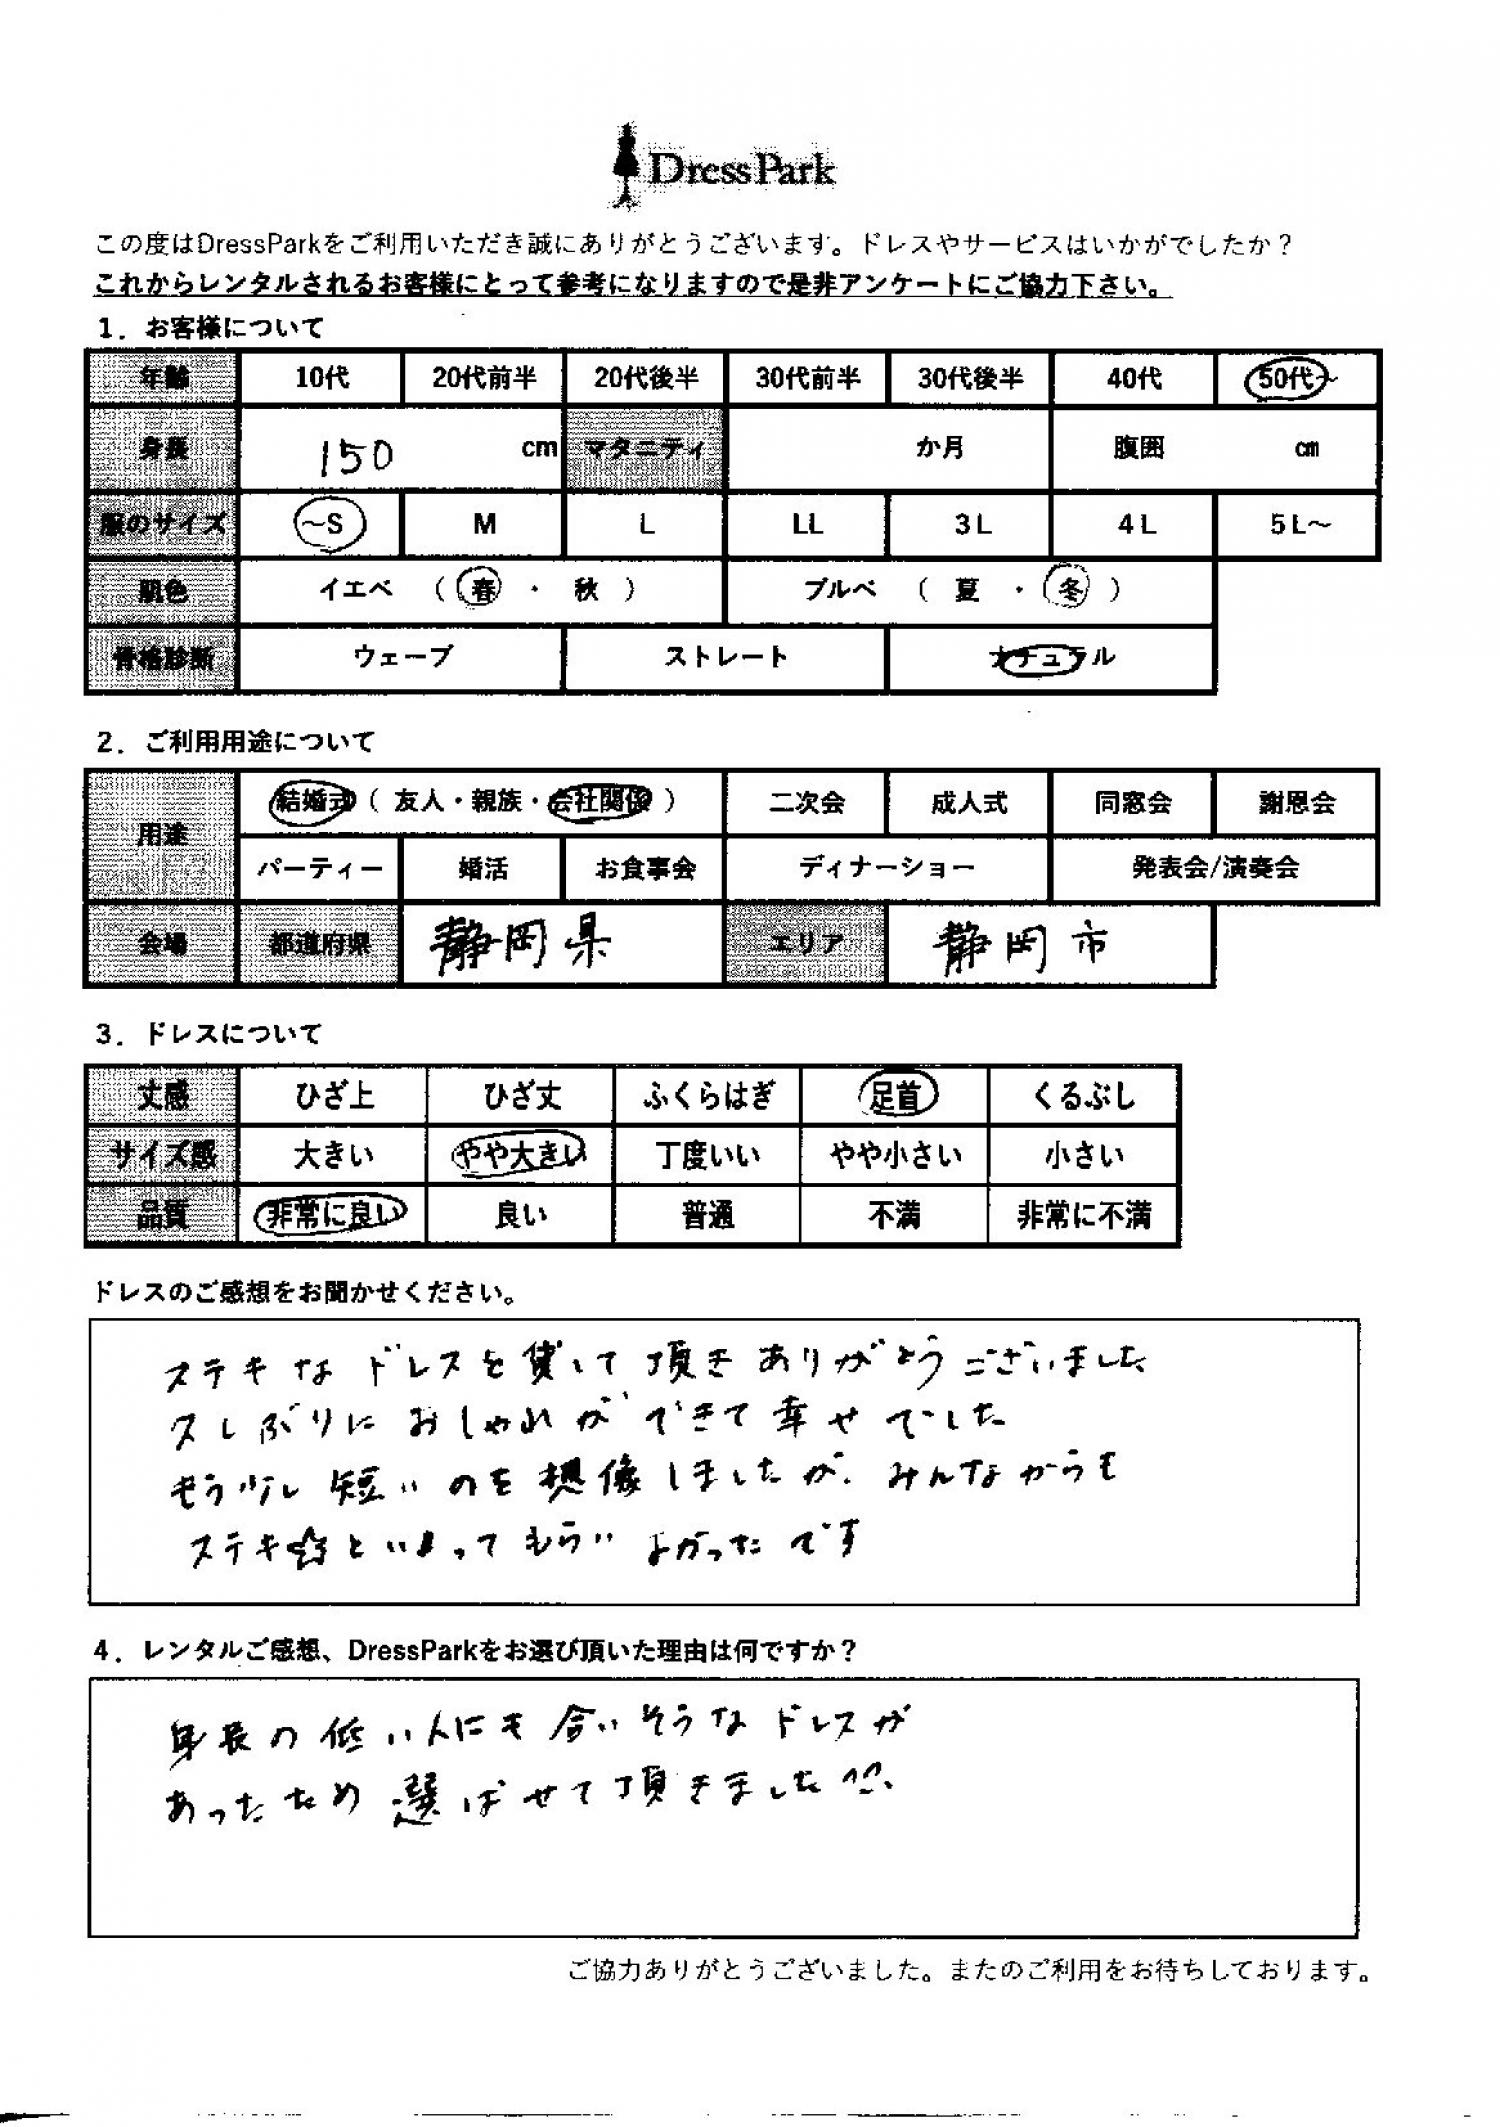 DressPark
この度はDressParkをご利用いただき誠にありがとうございます。ドレスやサービスはいかがでしたか？
これからレンタルされるお客様にとって参考になりますので是非アンケートにご協力下さい。
1．お客様について
年齢 10代 20代前半 20代後半 30代前半 30代後半 40代 50代～
身長 150 cm マタニティ か月 腹囲 cm
服のサイズ ～S M L LL 3L 4L 5L～
肌色 イエベ （ 春 ・ 秋 ） ブルベ （ 夏 ・ 冬 ）
骨格診断 ウェーブ ストレート ナチュラル
2．ご利用用途について
用途 結婚式（ 友人・親族・会社関係 ） 二次会 成人式 同窓会 謝恩会
パーティー 婚活 お食事会 ディナーショー 発表会/演奏会
会場 都道府県 静岡県 エリア 静岡市
3．ドレスについて
丈感 ひざ上 ひざ丈 ふくらはぎ 足首 くるぶし
サイズ感 大きい やや大きい 丁度いい やや小さい 小さい
品質 非常に良い 良い 普通 不満 非常に不満
ドレスのご感想をお聞かせください。
ステキなドレスを貸して頂きありがとうございました
久しぶりにおしゃれができて幸せでした
もう少し短いのを想像しましたが、みんなからも
ステキ☆といってもらいよかったです
4．レンタルご感想、DressParkをお選び頂いた理由は何ですか？
身長の低い人にも合いそうなドレスが
あったため選ばせて頂きました^^.
ご協力ありがとうございました。またのご利用をお待ちしております。